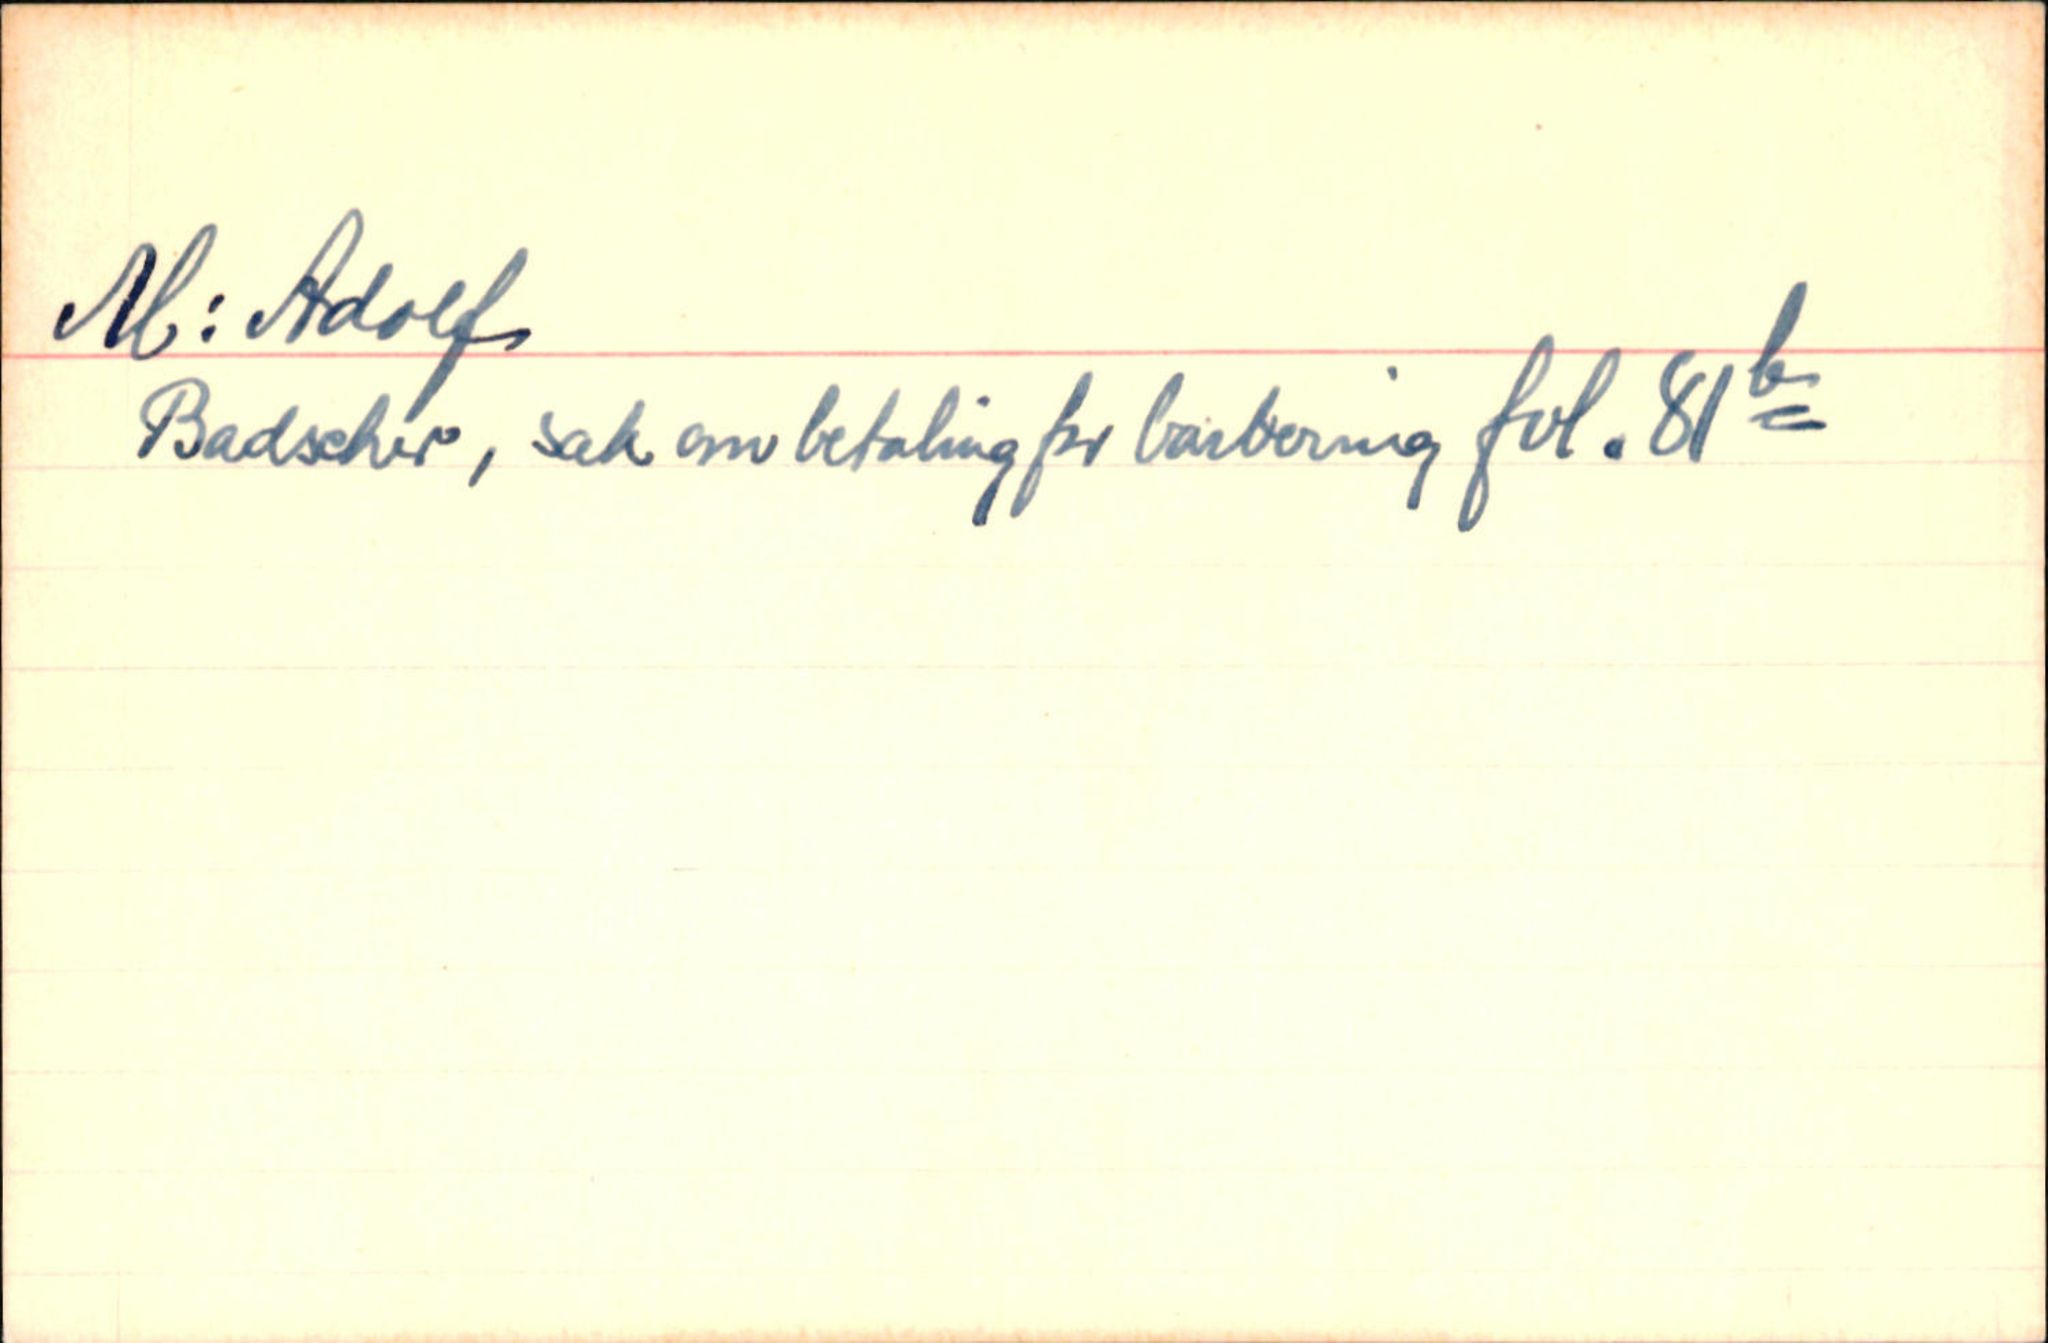 M: Adolf
Badscher, sak om betaling for barbering fol. 81 b